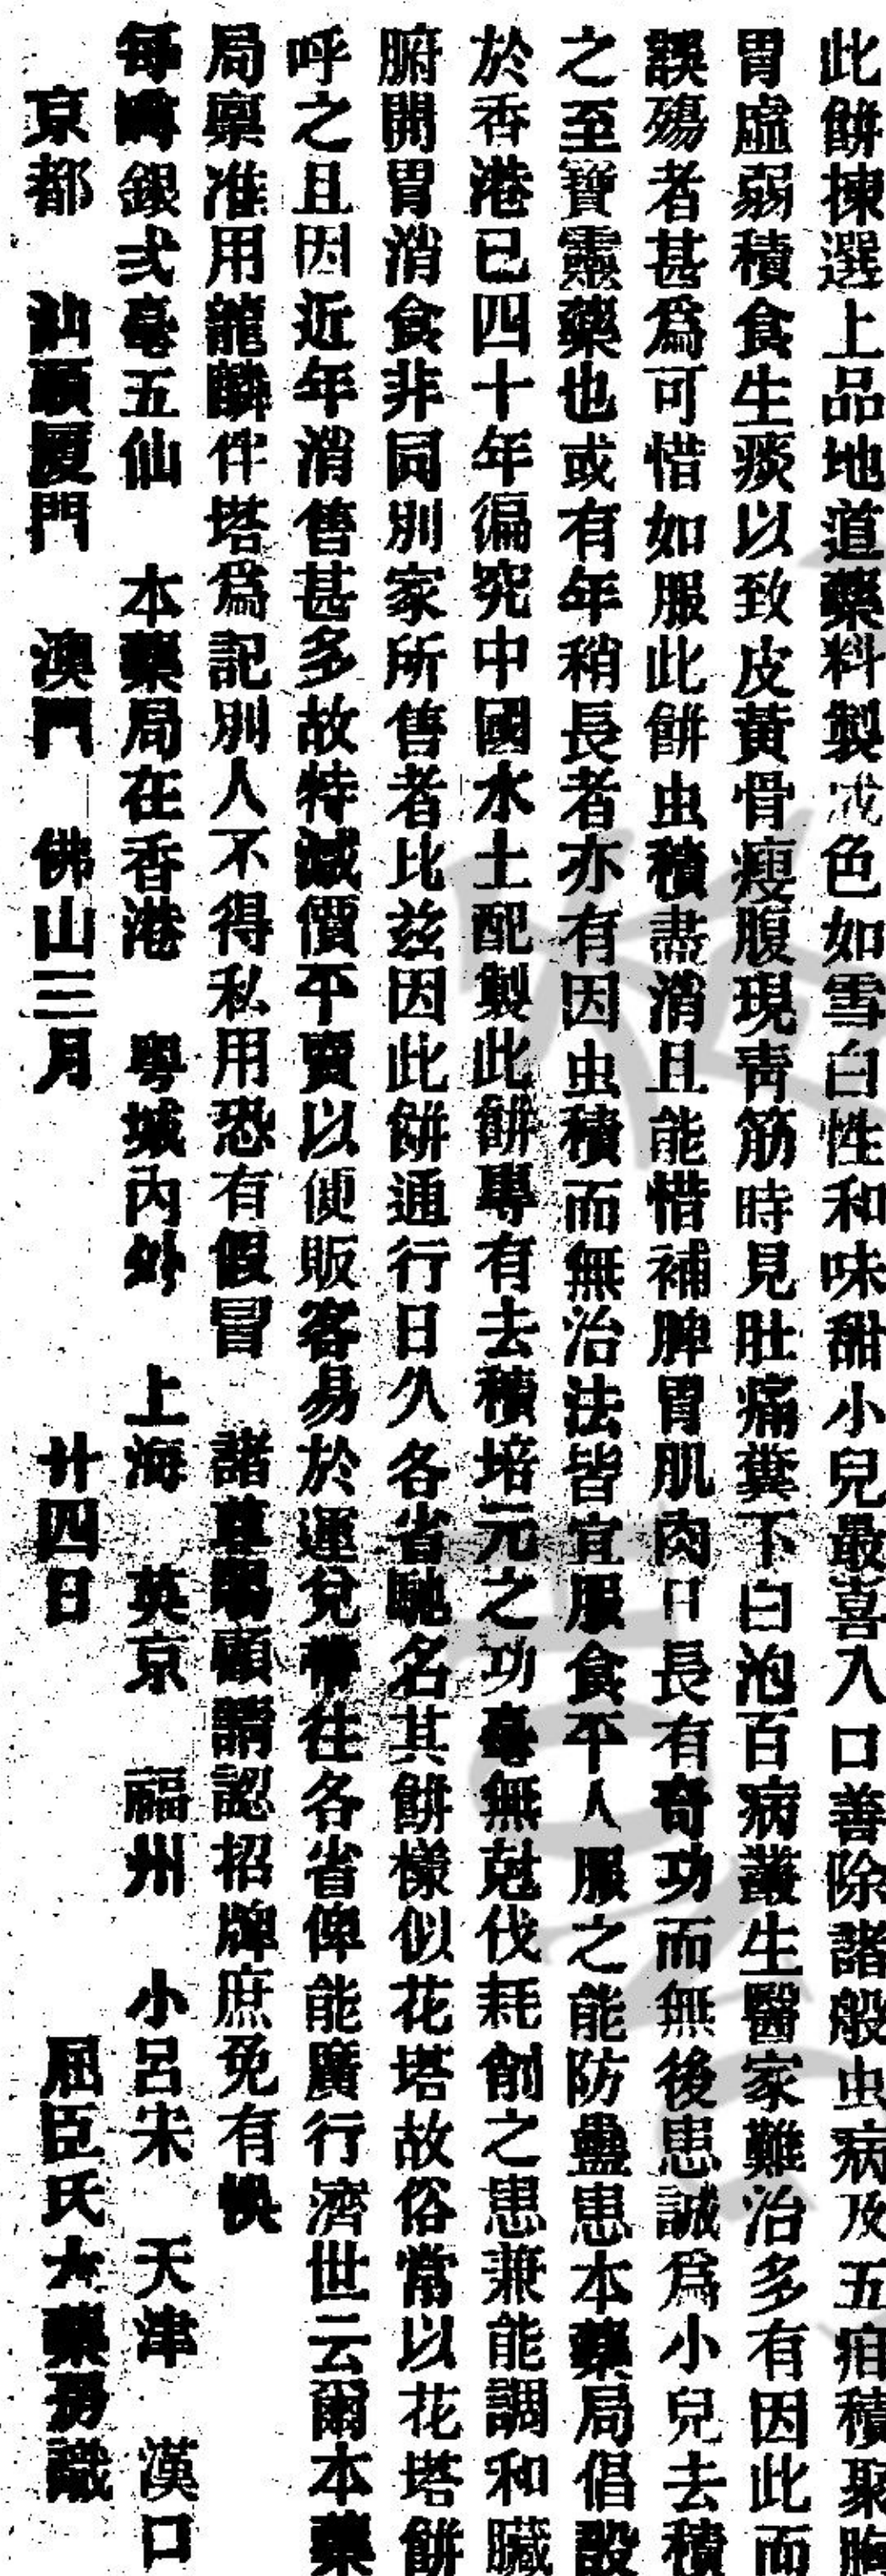 此餅揀選上品地道藥料製成色如雪白性和味甜小兒最喜入口善除諸般虫病及五疳積聚胸
胃虛弱積食生痰以致皮黃骨瘦腹現靑筋時見肚痛糞下白泡百病叢生醫家難治多有因此而
誤殤者甚爲可惜如服此餅虫積盡消且能惜補脾胃肌肉日長有奇功而無後患誠爲小兒去積
之至寶靈藥也或有年稍長者亦有因虫積而無治法皆宜服食平人服之能防蠱患本藥局倡設
於香港已四十年徧究中國水土配製此餅專有去積培元之功毫無尅伐耗削之患兼能調和臟
腑開胃消食非同別家所售者比兹因此餅通行日久各省馳名其餅樣似花塔故俗常以花塔餅
呼之且因近年消售甚多故特減價平賣以便販客易於運兌帶往各省俾能廣行濟世云爾本藥
局稟准用龍麟伴塔爲記別人不得私用恐有假冒 諸尊賜顧請認招牌庶免有悞
每罇銀弍毫五仙 本藥局在香港 粤城內外 上海 英京 福州 小呂宋 天津 漢口
京都 汕頭廈門 澳門 佛山三月 廿四日 屈臣氏大藥房識